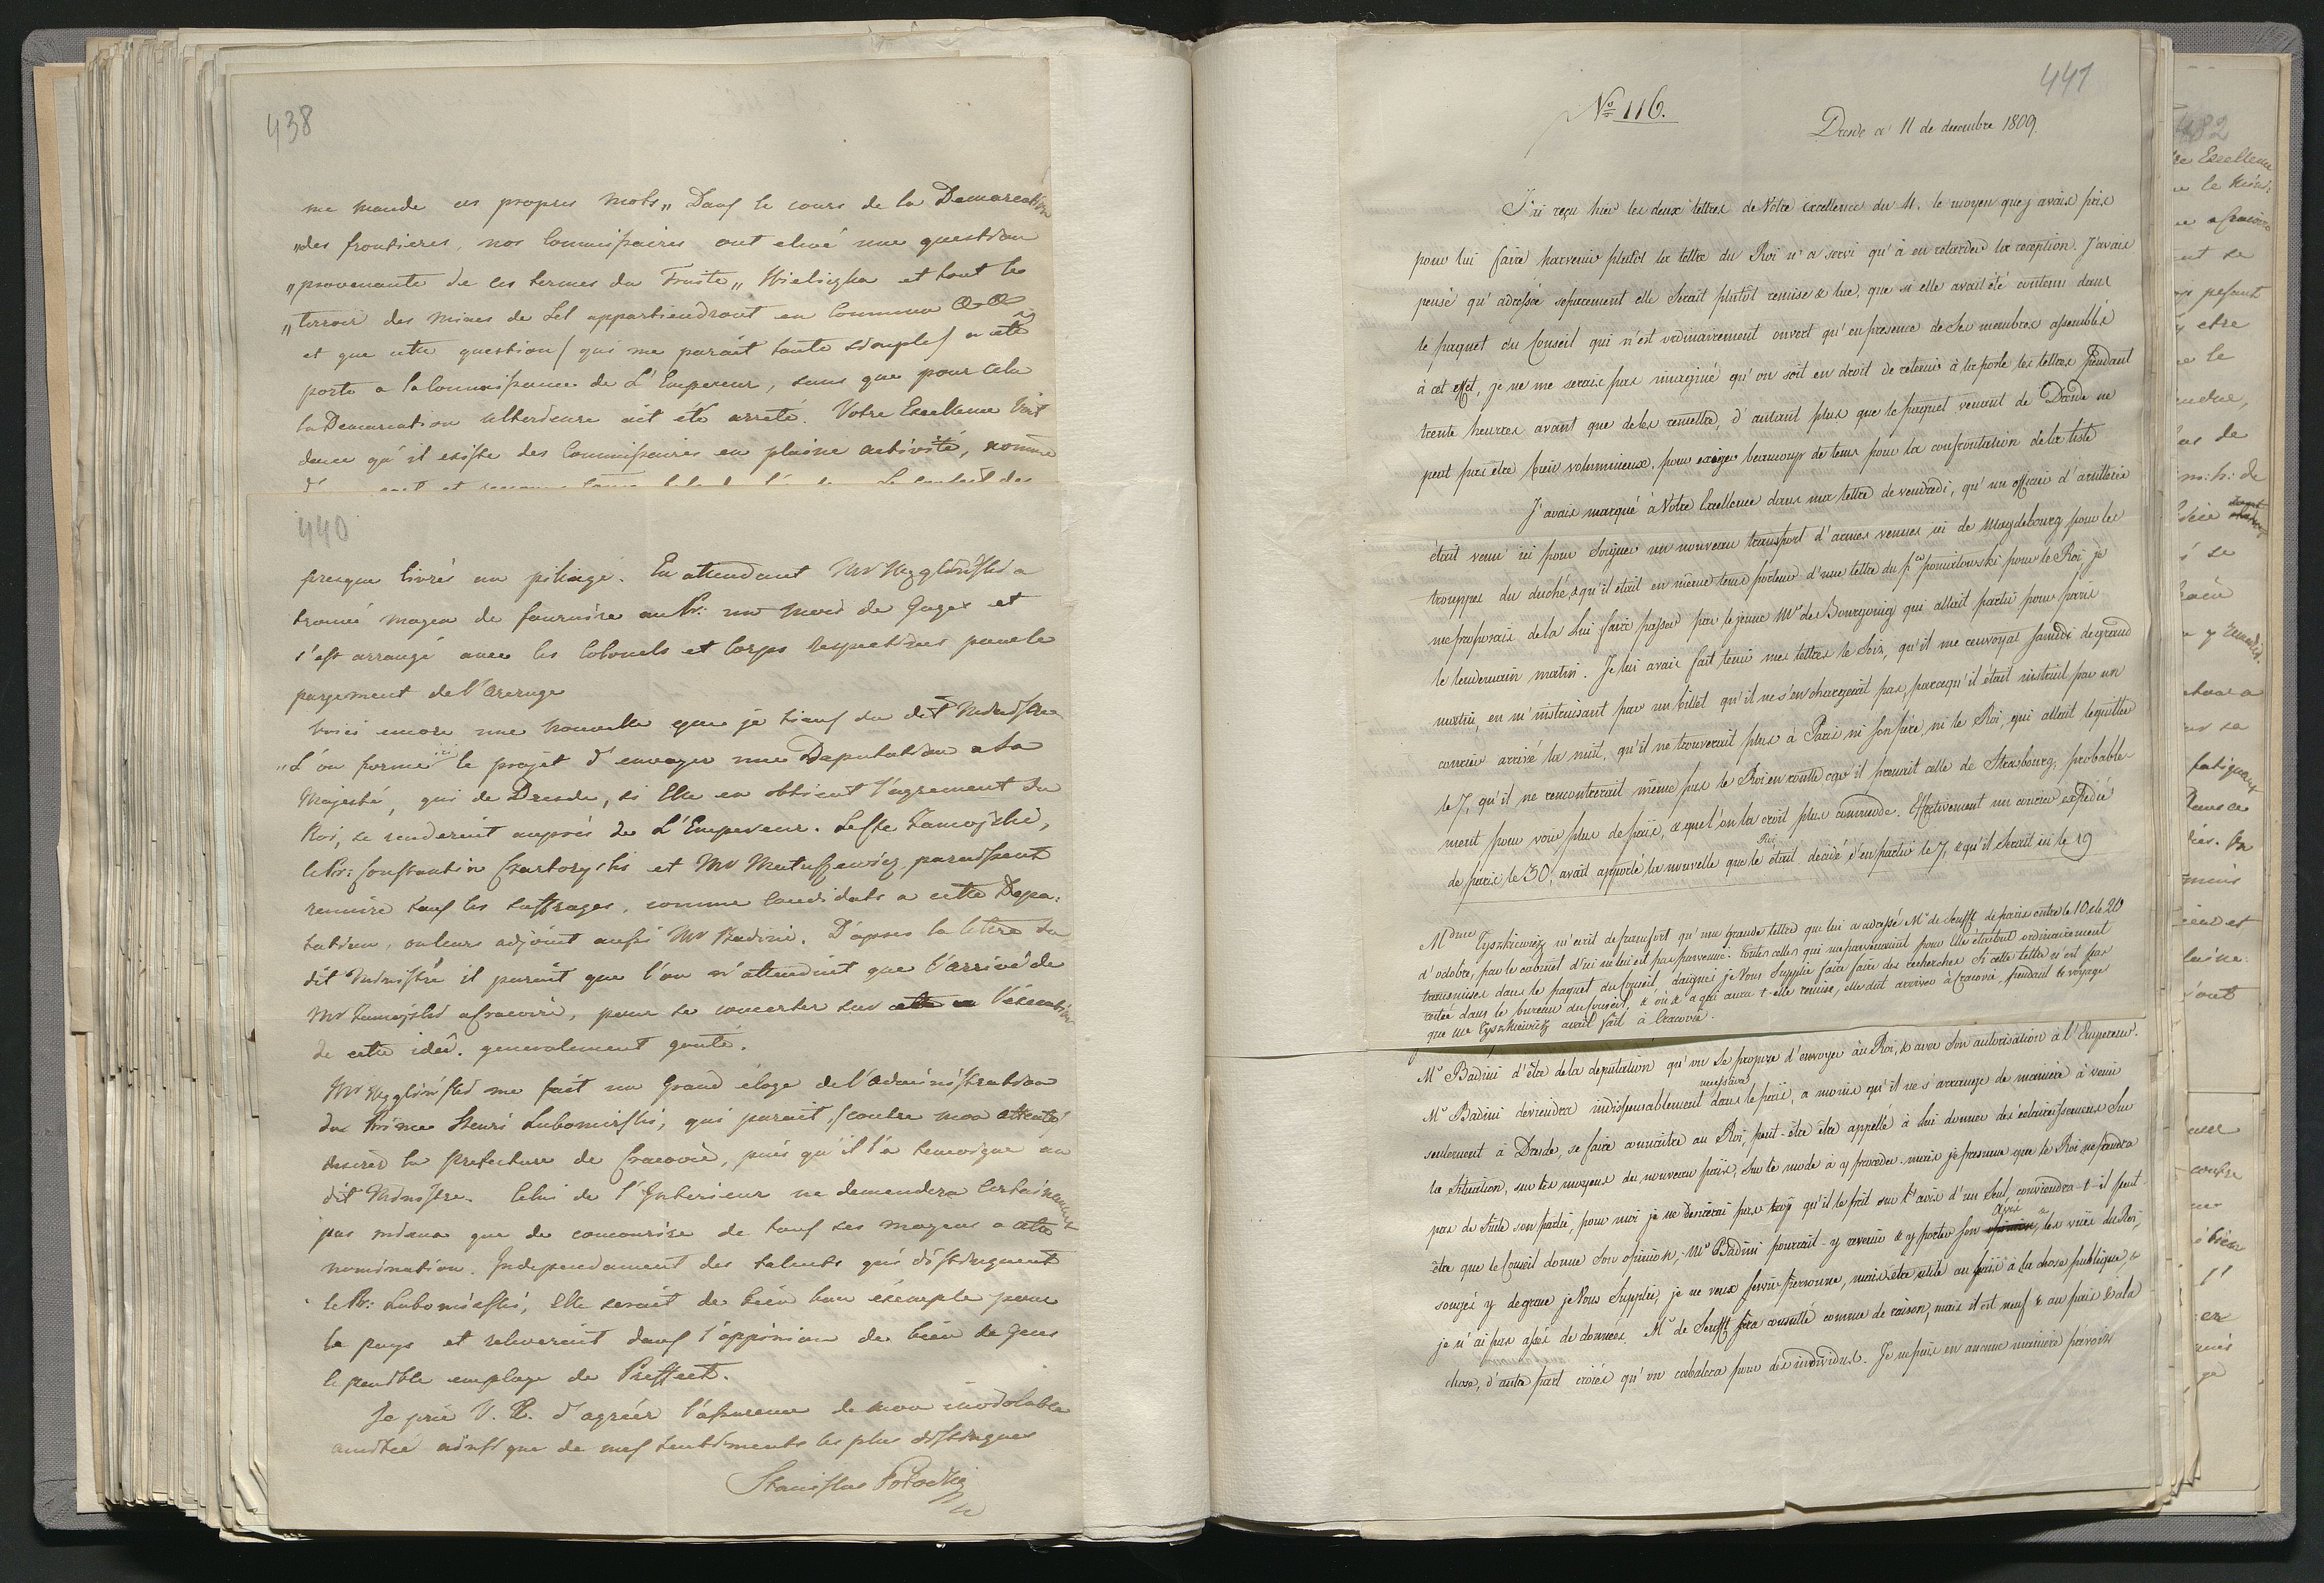 438
me mande ces propres mots „ Dans le cours de la Demarcation
„des frontieres, nos Commissaires ont elevé une question
„provenante de ces termes du Traité „ Wieliczka et tout le
„terroir des Mines de Sel appartiendront en Commun
et que cette question (qui me parait toute simple) a été
porté a la Connaissance de L'Empereur, sans que pour cela
la Demarcation ulterieure ait été arreté. Votre Excellence voit
donc qu'il existe des Commissaires en pleine activité, nommé
440
presque livrés au pillage. En attendant Mr Węgleński a
trouvé moyen de fournire au Pr: un Mois de Gages et
s'est arrangé avec les Colonels et Corps respectives pour le
payement de l'arerage
Voici encore une nouvelle que je tiens du dit Ministre
„L'on forme ici le projet d'envoyer une Deputation a Sa
Majesté, qui de Dresde, si Elle en obtient l'agrement du
Roi, se renderoit auprès de L'Empereur. Zamojski,
le Pr: Constantin Czartoryski et Mr Matuszewicz, paroissent
reunire tous les suffrages, comme Candidats a cette Depu:
tation, on leurs adjoint aussi Mr Badeni. D'apres la lettre du
dit Ministre il parait que l'on n'attendoit que l'arrivé de
Mr Zamojski a Cracovie, pour se concerter sur l'execution
de cette idée. generalement gouté.
Mr Węgleński me fait un Grand éloge de l'administration
du Prince Henri Lubomirski, qui parait (contre mon attente)
desirer la Prefecture de Cracovie, puis qu'il l'a temoigne au
dit Ministre. Celui de l'Interieur ne demendera Certainement
pas mieux que de concourire de tous ses moyens a cette
nomination. Independament des talents qui distinguent
le Pr: Lubomirski, Elle serait de bien bon éxemple pour
le pays et releveroit dans l'oppinion de bien de gens
le penible employe de Preffect.
Je prie V. E. d'agréer l'assurence de mon inviolable
amitié ainsi que de mes sentiments les plus distingués
Stanislas Potocki
441
No 116.
Dresde ce 11 de decembre 1809.
J'ai reçu hier les deux lettres de Votre excellence du 4. le moyen que j'avais pris
pour lui faire parvenir plutôt la lettre du Roi n'a servi qu'à en retarder la reception. J'avais
pensé qu'adressée separement elle serait plutôt remise & lue, que si elle avait été contenu dans
le paquet du Conseil qui n'est ordinairement ouvert qu'en presence de ses membres assemblés
à cet effet, je ne me serais pas imaginé qu'on soit en droit de retenir à la poste les lettres pendant
trente heures avant que de les remettre, d'autant plus que le paquet venant de Dresde ne
peut pas être bien volumineux, pour exiger beaucoup de tems pour la confrontation de la liste
J'avais marqué à Votre Excellence dans ma lettre de vendredi, qu'un officier d'artillerie
était venu ici pour soigner un nouveau transport d'armes venues ici de Magdebourg pour les
trouppes du duché, & qu'il était en même tems porteur d'une lettre du pce poniatowski pour le Roi, je
me proposais de la Lui faire passer par le jeune Mr de Bourgoing qui allait partir pour paris
le lendemain matin. Je lui avais fait tenir mes lettres le soir, qu'il me renvoyat samedi de grand
matin, en m'instruisant par un billet qu'il ne s'en chargerait pas, parcequ'il était instruit par un
courier arrivé la nuit, qu'il ne trouverait plus à Paris ni son père, ni le Roi, qui allait le quitter
le 7, qu'il ne rencontrerait même pas le Roi en route, car il prenait celle de Strasbourg, probable-
ment pour voir plus de païs, & que l'on la croit plus commode. Effectivement un courier expedié
de paris le 30, avait apporté la nouvelle que le Roi était decidé d'en partir le 7, & qu'il serait ici le 19
Mdme Tyszkiewicz m'écrit de francfort qu'une grande lettre que lui a adressé Mr de Senfft de paris entre le 10 & le 20
d'octobre, par le cabinet d'ici ne lui est pas parvenue. toutes celles qui me parvenaient pour Elle étaient ordinairement
transmises dans le paquet du Conseil, daignés je Vous supplie faire faire des recherches si cette lettre n'est pas
restée dans le bureau du conseil, & où & à qui aura-t-elle remise, elle dût arriver à Cracovie, pendant le voyage
que me Tyszkiewicz avait fait à Cracovie.
Mr Badini d'être de la deputation qu'on se propose d'envoyer au Roi, & avec son autorisation à l'Empereur.
Mr Badini deviendra indispensablement necessaire dans le païs, a moins qu'il ne s'arrange de maniere à venir
seulement à Dresde, se faire connaitre au Roi, peut-être être appellé à lui donner des éclaircissemens sur
la situation, sur les moyens du nouveau païs, sur le mode à y proceder. mais je presume que le Roi ne prendra
pas de suite son partie, pour moi je ne desirerai pas trop qu'il le prit sur l'avis d'un seul, conviendra-t-il peut
être que le Conseil donne son opinion, Mr Badini pourrait-y revenir & y porter son avis, & les vües du Roi,
songés y de grace je Vous supplie, je ne veux servir personne, mais être utile au païs à la chose publique, &
je n'ai pas assés de données, Mr de Senfft sera consulté comme de raison, mais il est neuf & au païs & à la
chose, d'autre part croiés qu'on cabalera pour des individus. Je ne puis en aucune maniere prévoir